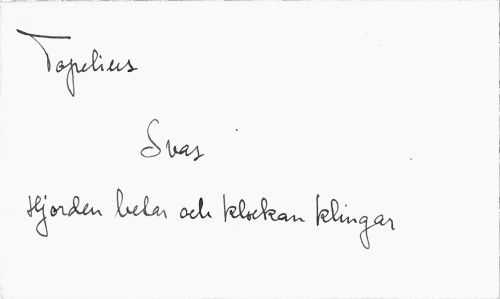 Topelius
Svar
Hjorden betar och klockan klingar